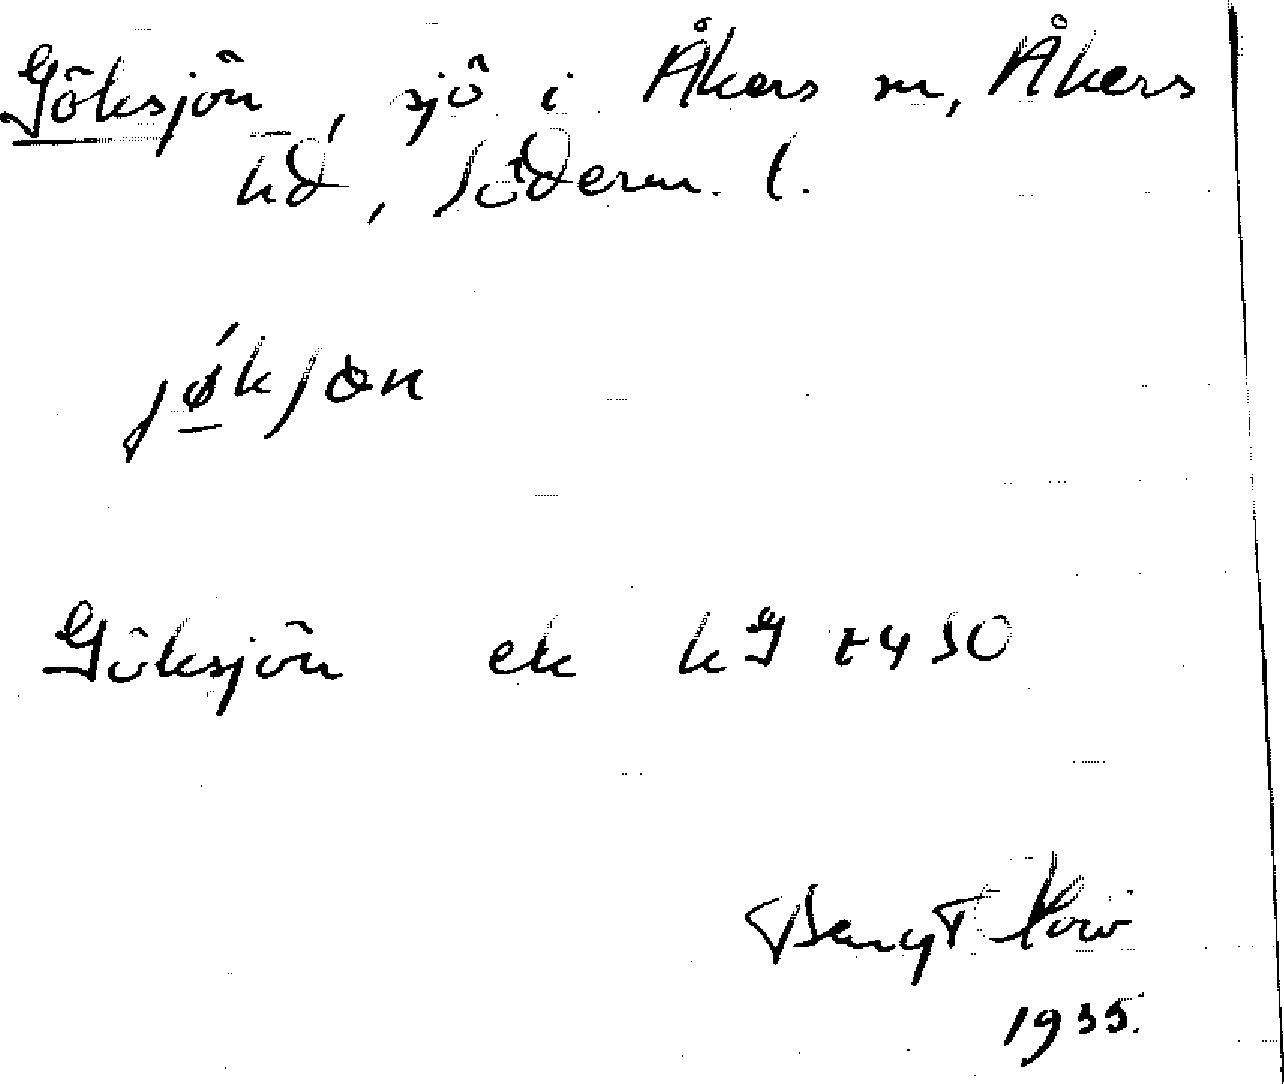 Göksjön, sjö i Åkers sn, Åkers
hd, Söderm. l.
jǿ̱kʃøn
Göksjön ek kg
Bengt
1935.